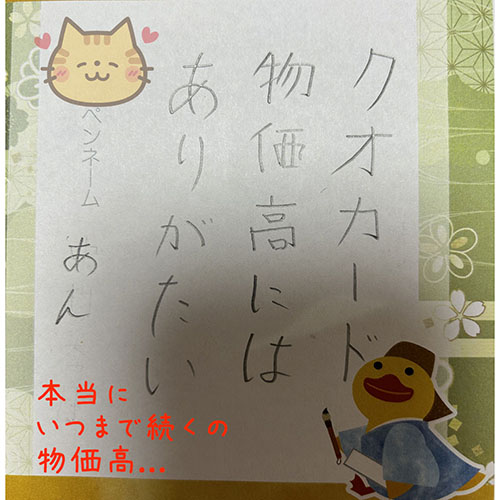 クオカード
物価高には
ありがたい
ペンネーム あん
本当に
いつまで続くの
物価高...